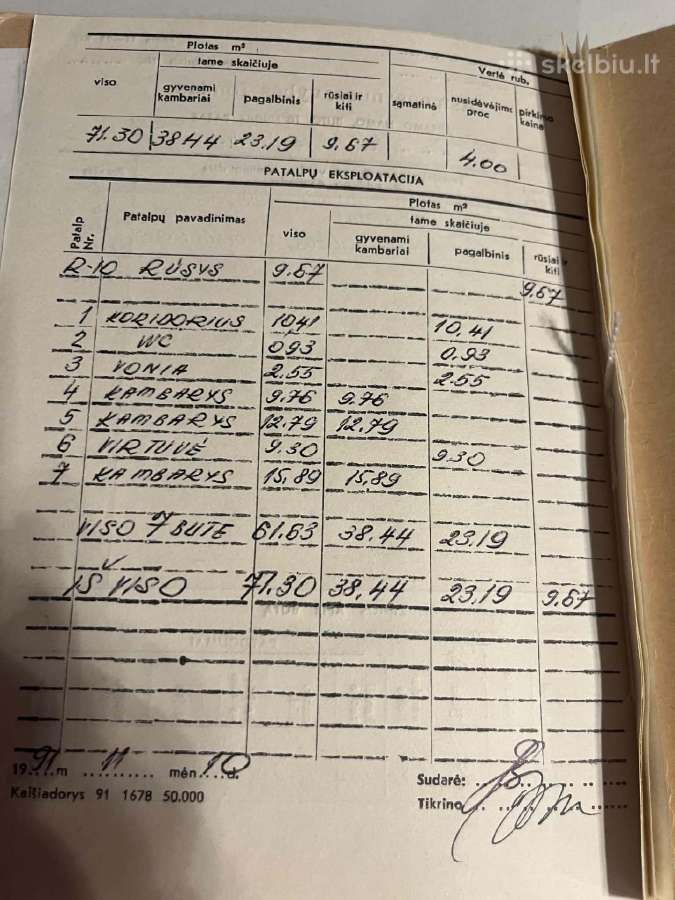 skelbiu.lt
Plotas m²
Vertė rub.
viso
tame skaičiuje
gyvenami kambariai
pagalbinis
rūsiai ir kiti
sąmatinė
nusidėvėjimo proc
pirkimo kaina
71.30 38.44 23.19 9.67 4.00
PATALPŲ EKSPLOATACIJA
Plotas m²
Patalp Nr.
Patalpų pavadinimas
viso
tame skaičiuje
gyvenami kambariai
pagalbinis
rūsiai ir kiti
R-10 RŪSYS 9.67 9.67
1 KORIDORIUS 10.41 10.41
2 WC 0.93 0.93
3 VONIA 2.55 2.55
4 KAMBARYS 9.76 9.76
5 KAMBARYS 12.79 12.79
6 VIRTUVĖ 9.30 9.30
7 KAMBARYS 15.89 15.89
VISO 7 BUTE 61.63 38.44 23.19
IŠ VISO 71.30 38.44 23.19 9.67
1991 m 11 mėn. 10 d.
Sudarė:
Kaišiadorys 91 1678 50.000
Tikrino